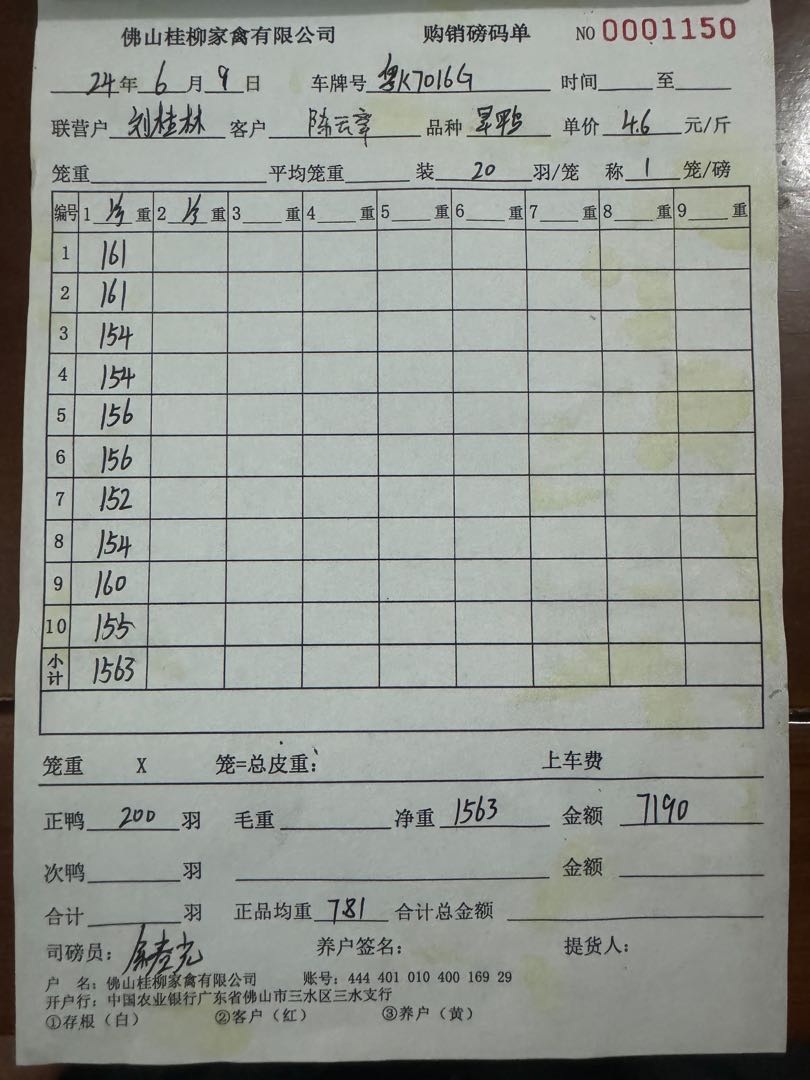 佛山桂柳家禽有限公司 购销磅码单 NO 0001150
24年 6 月 9 日 车牌号 粤K7016G 时间 至
联营户 刘桂林 客户 陈云章 品种 单价 4.6 元/斤
笼重 平均笼重 装 20 羽/笼 称 1 笼/磅
编号 1 重 2 重 3 重 4 重 5 重 6 重 7 重 8 重 9 重
1 161
2 161
3 154
4 154
5 156
6 156
7 152
8 154
9 160
10 155
小计 1563
笼重 X 笼=总皮重: 上车费
正鸭 200 羽 毛重 净重 1563 金额 7190
次鸭 羽 金额
合计 羽 正品均重 7.81 合计总金额
司磅员: 养户签名: 提货人:
户 名: 佛山桂柳家禽有限公司 账号: 444 401 010 400 169 29
开户行: 中国农业银行广东省佛山市三水区三水支行
①存根(白) ②客户(红) ③养户(黄)